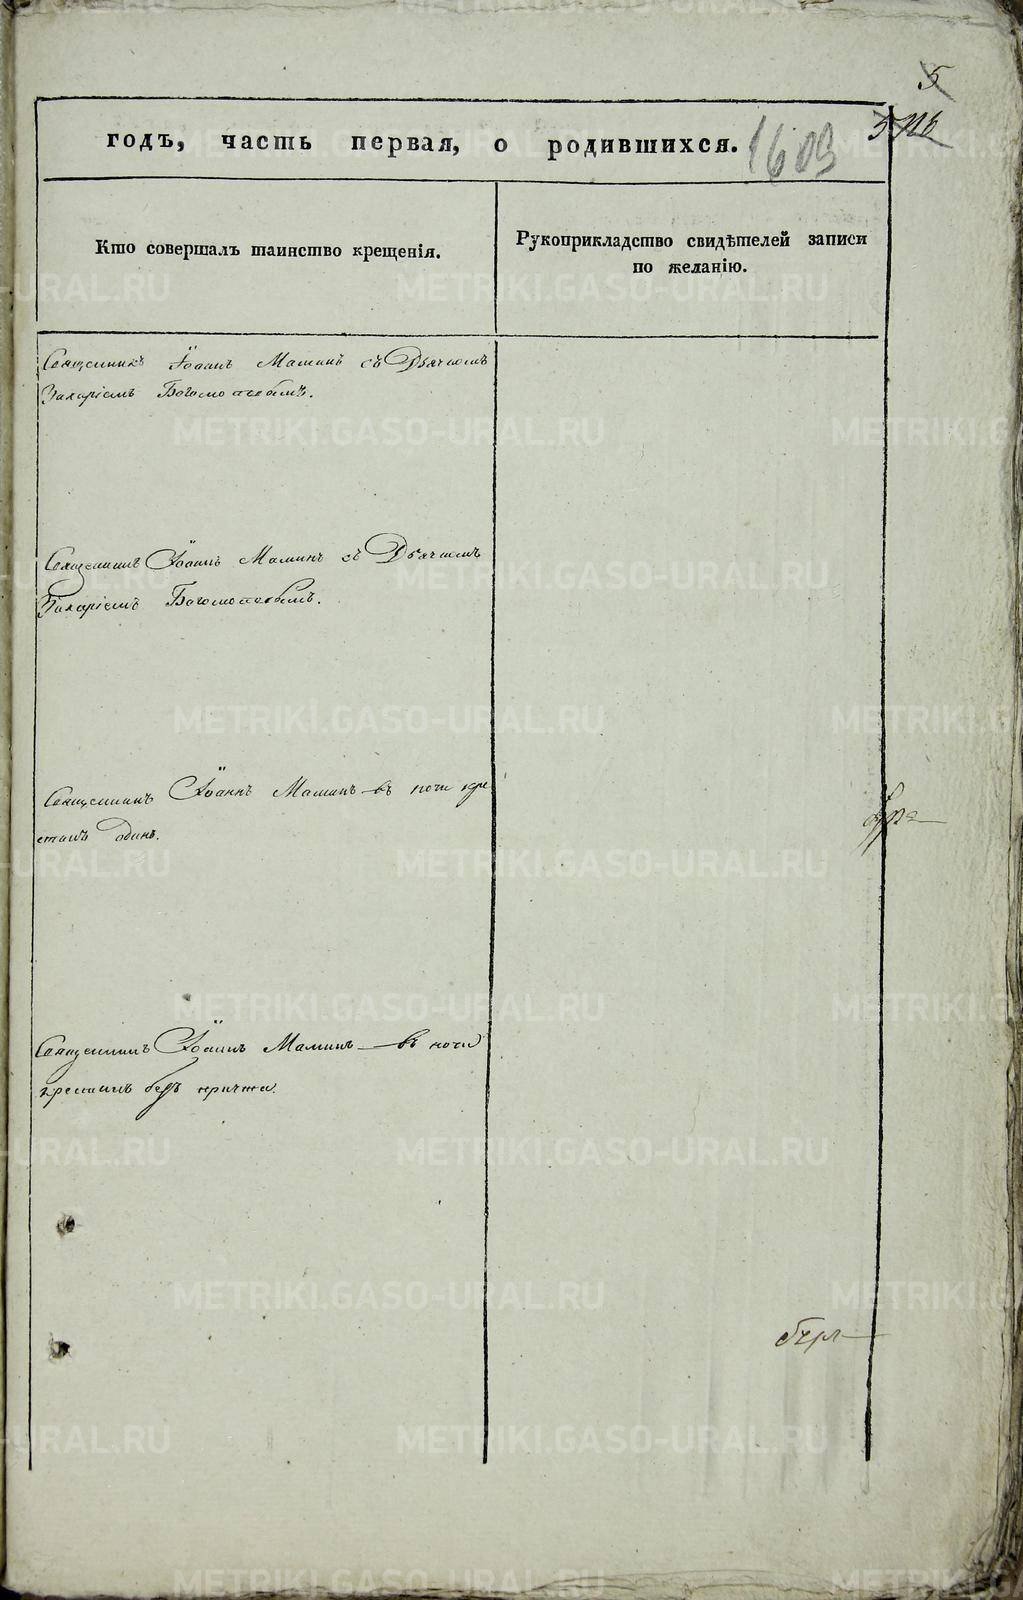 5
годъ, часть первая, о родившихся. 1603
Кто совершалъ таинство крещенія.
Рукоприкладство свидѣтелей записи
по желанію.
Священникъ Іоаннъ Маминъ съ Дьячкомъ
Захаріемъ Богомоловымъ.
Священникъ Іоаннъ Маминъ съ Дьячкомъ
Захаріемъ Богомоловымъ.
Священникъ Іоаннъ Маминъ въ ночи кре
стилъ одинъ.
Священникъ Іоаннъ Маминъ въ ночи
крестилъ безъ причта.
METRIKI.GASO-URAL.RU